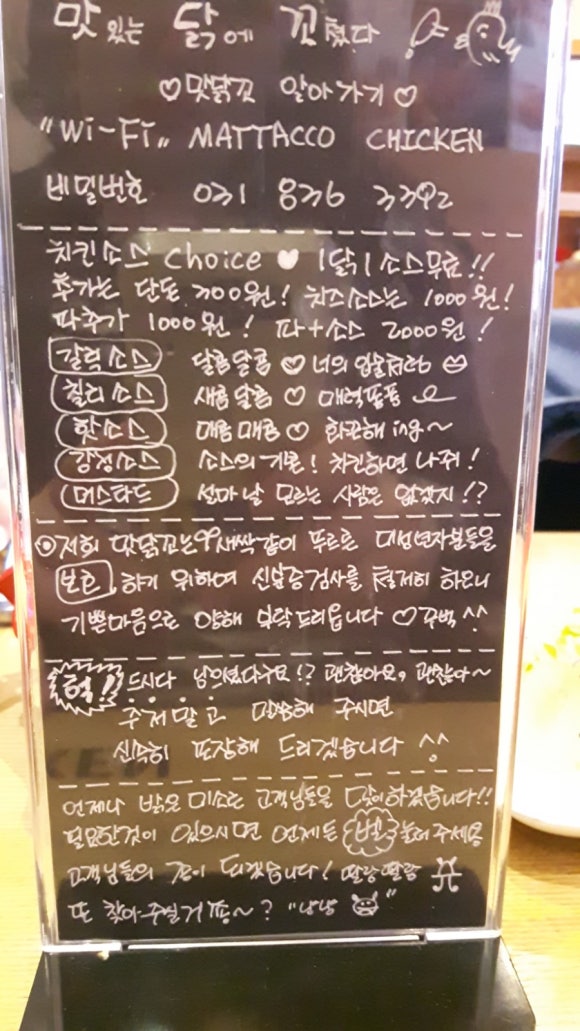 맛있는 닭에 꼬쳤다
♡맛닭꼬 알아가기♡
"Wi-Fi" MATTACCO CHICKEN
비밀번호 031 836 3392
치킨소스 choice ♥ 1닭 1소스무료!!
추가는 단돈 300원! 치즈소스는 1000원!
파추가 1000원! 파+소스 2000원!
갈릭소스 달콤달콤 ♡ 너의 입술처럼
칠리소스 새콤달콤 ♡ 매력뿜뿜
핫소스 매콤매콤 ♡ 화끈해 ing~
강정소스 소스의 기본! 치킨하면 나쥐!
머스타드 설마 날 모르는 사람은 없겠지!?
저희 맛닭꼬는 새싹같이 푸르른 미성년자분들을
보호 하기 위하여 신분증검사를 철저히 하오니
기쁜마음으로 양해 부탁드리옵니다 ♡꾸벅^^
헉!! 드시다 남으셨다구요!? 괜찮아요, 괜찮아~
주저말고 말씀해 주시면
신속히 포장해 드리겠습니다 ^^
언제나 밝은 미소로 고객님들을 맞이하겠습니다!!
필요한것이 있으시면 언제든 벨 눌러주세용
고객님들의 종이 되겠습니다! 딸랑딸랑
또 찾아주실거죵~? "냥냥"